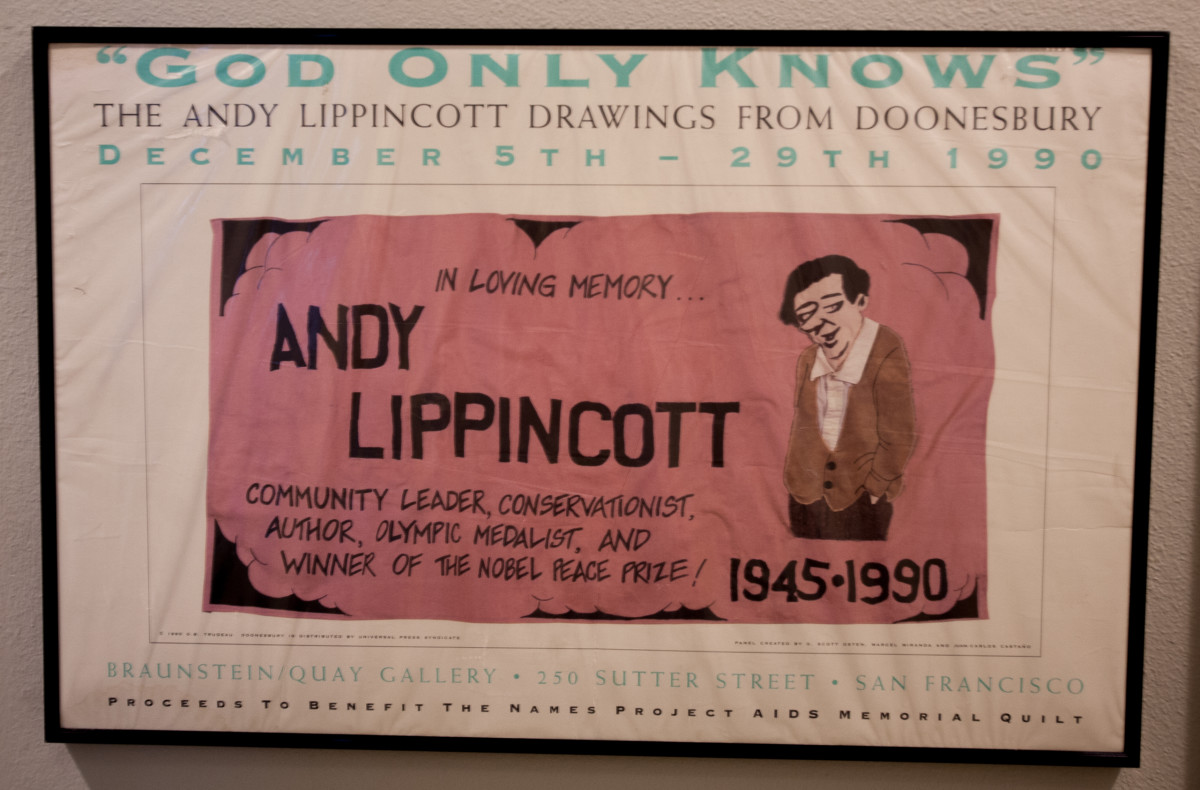 "GOD ONLY KNOWS"
THE ANDY LIPPINCOTT DRAWINGS FROM DOONESBURY
DECEMBER 5TH – 29TH 1990
IN LOVING MEMORY...
ANDY
LIPPINCOTT
COMMUNITY LEADER, CONSERVATIONIST,
AUTHOR, OLYMPIC MEDALIST, AND
WINNER OF THE NOBEL PEACE PRIZE!
1945•1990
© 1990 G.B. TRUDEAU DOONESBURY IS DISTRIBUTED BY UNIVERSAL PRESS SYNDICATE
PANEL CREATED BY G. SCOTT OSTEN, MANUEL MIRANDA AND JUAN-CARLOS CASTAÑO
BRAUNSTEIN/QUAY GALLERY • 250 SUTTER STREET • SAN FRANCISCO
PROCEEDS TO BENEFIT THE NAMES PROJECT AIDS MEMORIAL QUILT